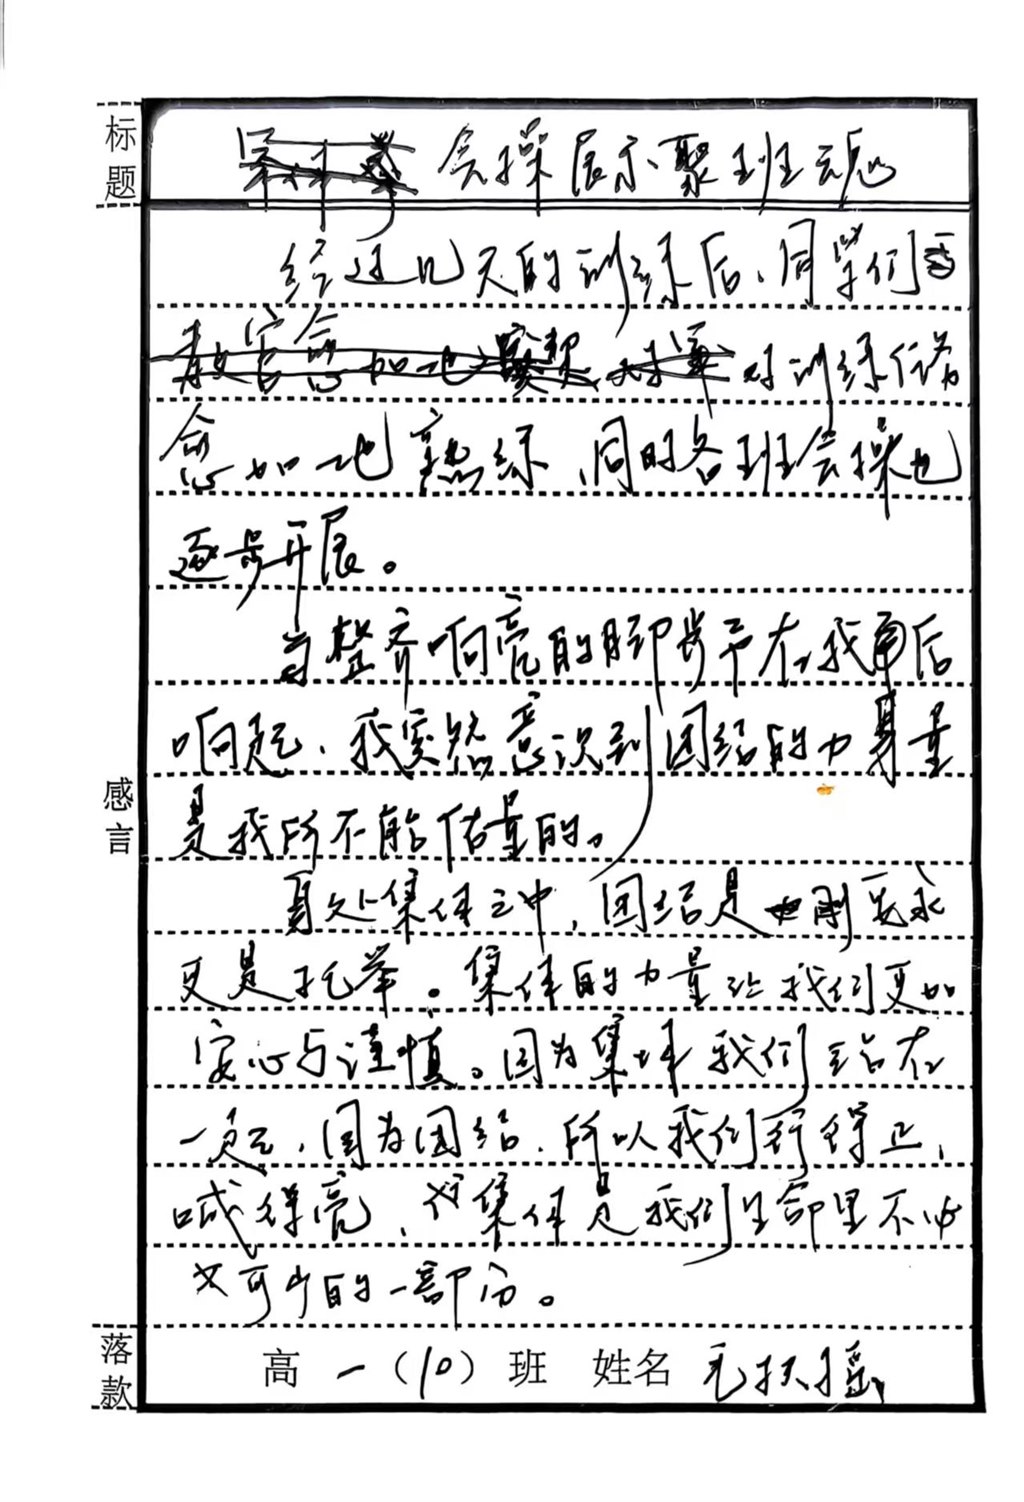 标题
会操展示聚班魂
经过几天的训练后、同学们
对训练任务
愈加地熟练、同时各班会操也
逐步开展。
当整齐响亮的脚步声在我身后
响起、我突然意识到团结的力量
是我所不能估量的。
身处集体之中，团结是刚要求
更是托举。集体的力量让我们更加
安心与谨慎。因为集体我们站在
一起、因为团结、所以我们行得正、
喊得亮、集体是我们生命里不必
可少的一部分。
感言
落款
高一（10）班 姓名 毛扶摇